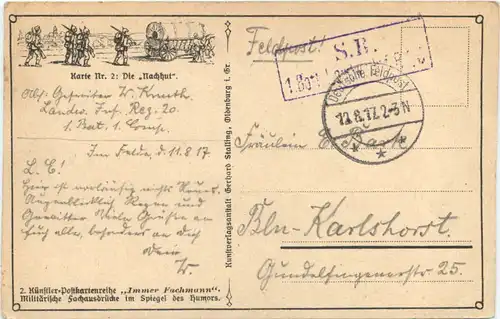 Karte Nr. 2: Die „Nachhut".
Abs: Gefreiter W.
Landw. Inf. Reg. 20
1. Bat. 1. Comp.
Im Felde, d. 11.8.17
L. E!
Hier ist vorläufig nichts Neues.
Augenblicklich Regen und
Gewitter. Viele Grüße an
Euch alle, besonders an Dich
Dein
W.
2. Künstler-Postkartenreihe „Immer Fachmann".
Militärische Fachausdrücke im Spiegel des Humors.
Kunstverlagsanstalt Gerhard Stalling, Oldenburg i. Gr.
Feldpost!
S.B.
Deutsche Feldpost
12.8.17. 2-3 N
* * *
Fräulein
Bln-Karlshorst.
Gundelfingerstr 25.